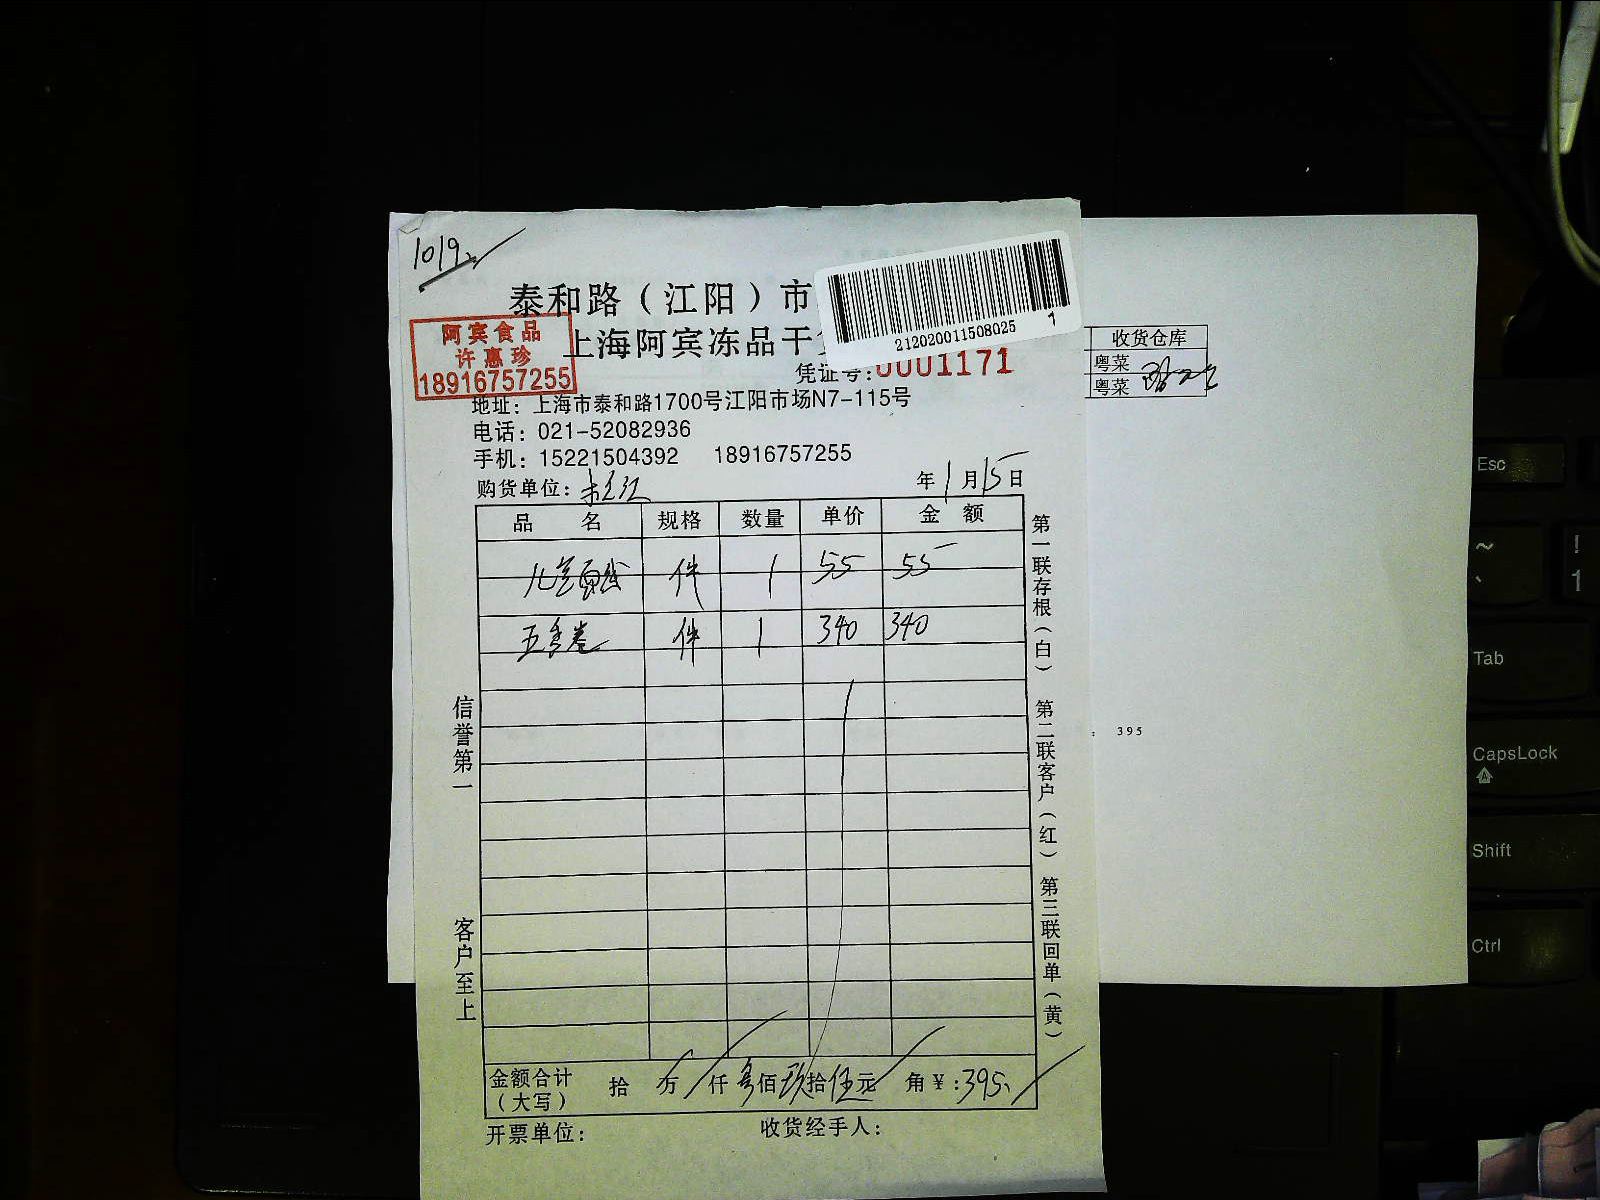 1019
泰和路（江阳）市
上海阿宾冻品干
阿宾食品
许惠珍
18916757255
212020011508025
1
凭证号:0001171
地址：上海市泰和路1700号江阳市场N7-115号
电话：021-52082936
手机：15221504392 18916757255
购货单位：
年1月15日
品 名 规格 数量 单价 金 额
件 1 55 55
五香卷 件 1 340 340
信誉第一
客户至上
第一联存根（白） 第二联客户（红） 第三联回单（黄）
金额合计（大写） 拾 万 仟 叁佰玖拾伍元 角￥:395
开票单位： 收货经手人：
收货仓库
粤菜
粤菜
: 395
Esc
~
`
!
1
Tab
CapsLock
Shift
Ctrl